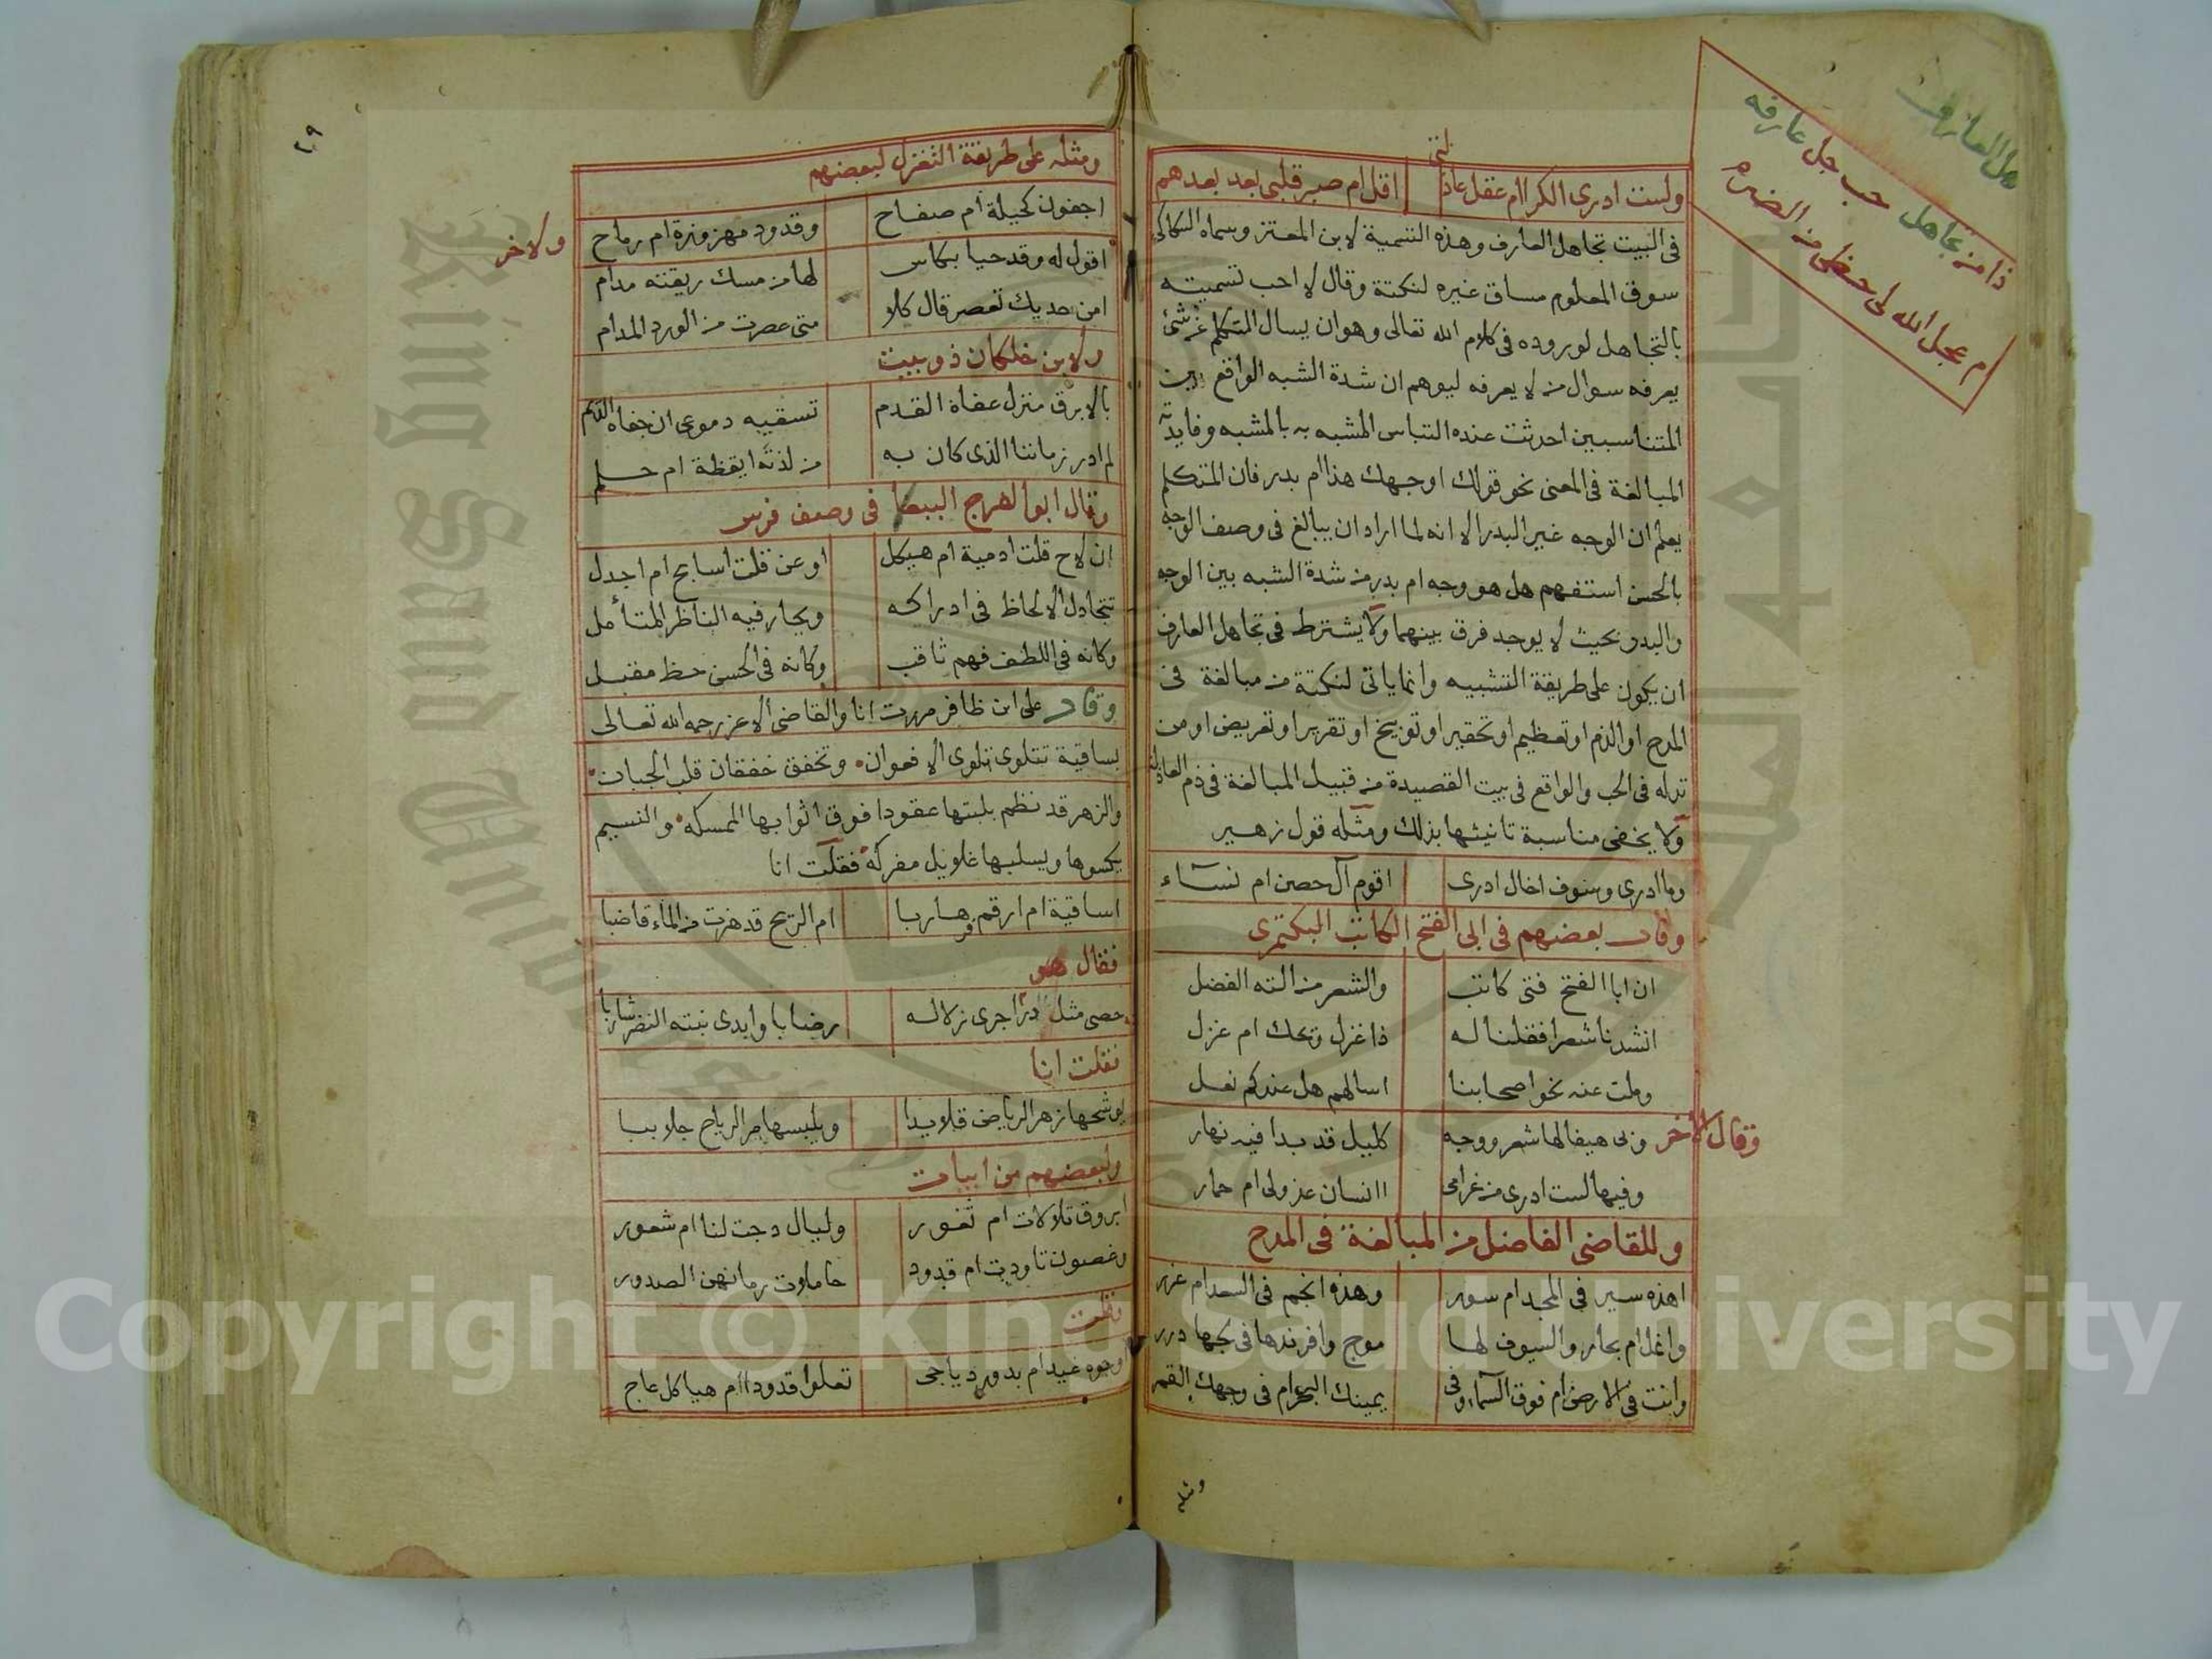 تجاهل العارف
ذا من تجاهل حب جل عارفه
ام عجل الله لى حظى من الضرر
ولست ادرى الكرا ام عقل عاذلتى اقل ام صبر قلبى بعد بعدهم
فى البيت تجاهل العارف وهذه التسمية لابن المعتز وسماه السكاكى
سوق المعلوم مساق غيره لنكتة وقال لا احب تسميته
بالتجاهل لوروده فى كلام الله تعالى وهو ان يسال المتكلم عن شئ
يعرفه سوال من لا يعرفه ليوهم ان شدة الشبه الواقع بين
المتناسبين احدثت عنده التباس المشبه به بالمشبه وفايدته
المبالغة فى المعنى نحو قولك اوجهك هذا ام بدر فان المتكلم
يعلم ان الوجه غير البدر الا انه لما اراد ان يبالغ فى وصف الوجه
بالحسن استفهم هل هو وجه ام بدر من شدة الشبه بين الوجه
والبدر بحيث لا يوجد فرق بينهما ولا يشترط فى تجاهل العارف
ان يكون على طريقة التشبيه وانما ياتى لنكتة من مبالغة فى
المدح او الذم او تعظيم او تحقير او توبيخ او تقرير او تعريض او من
تدله فى الحب والواقع فى بيت القصيدة من قبيل المبالغة فى ذم العاذلة
ولا يخفى مناسبة تانيثها بذلك ومثله قول زهير
وما ادرى وسوف اخال ادرى اقوم آل حصن ام نساء
وقال بعضهم فى ابى الفتح الكاتب البكتمرى
ان ابا الفتح فتى كاتب والشعر من الته الفضل
انشدنا شعرا فقلنا له ذا غزل ويحك ام غزل
وملت عنه نحو اصحابنا اسالهم هل عندكم نعل
وقال الاخر
وبى هيفا لها شعر ووجه كليل قد بدا فيه نهار
وفيها لست ادرى من غرامى اانسان عذولى ام حمار
وللقاضى الفاضل من المبالغة فى المدح
اهذه سير فى المجد ام سور وهذه انجم فى السعد ام غرر
وانمل ام بحار والسيوف لها موج وافرندها فى لجها درر
وانت فى الارض ام فوق السماء وفى يمينك البحر ام فى وجهك القمر
ومثله
٢٩
ومثله على طريقة التغزل لبعضهم
اجفون كحيلة ام صفاح وقدود مهزوزة ام رماح
ولاخر
اقول له وقد حيا بكاس لها من مسك ريقته مدام
امن خديك تعصر قال كلا متى عصرت من الورد المدام
ولابن خلكان ذو بيت
بالابرق منزل عفاه القدم تسقيه دموعى ان جفاه الديم
لم ادر زماننا الذى كان به من لذته ايقظة ام حلم
وقال ابو الفرج الببغا فى وصف فرس
ان لاح قلت ادمية ام هيكل او عن قلت اسابح ام اجدل
تتجادل الالحاظ فى ادراكه ويحار فيه الناظر المتأمل
وكانه فى اللطف فهم ثاقب وكانه فى الحسن حظ مقبل
وقال على ابن ظافر مررت انا والقاضى الاعز رحمه الله تعالى
بساقية تتلوى تلوى الافعوان وتخفق خفقان قلب الجبان
والزهر قد نظم بلبتها عقودا فوق اثوابها الممسكة والنسيم
يكسوها ويسلبها غلايل مفركة فقلت انا
اساقية ام ارقم فر هاربا ام الريح قد هزت من الماء قاضبا
فقال هو
حصى مثل در اجرى زلاله رضابا وابدى نبته النضر شاربا
فقلت انا
يوشحها زهر الرياض قلايدا ويلبسها مر الرياح جلاببا
ولبعضهم من ابيات
ابروق تلالات ام ثغور وليال دجت لنا ام شعور
وغصون تاودت ام قدود حاملات رمانهن الصدور
فقلت
وجوه غيد ام بدور دياجى تعلوا قدودا ام هياكل عاج
Copyright © King Saud University
King Saud University